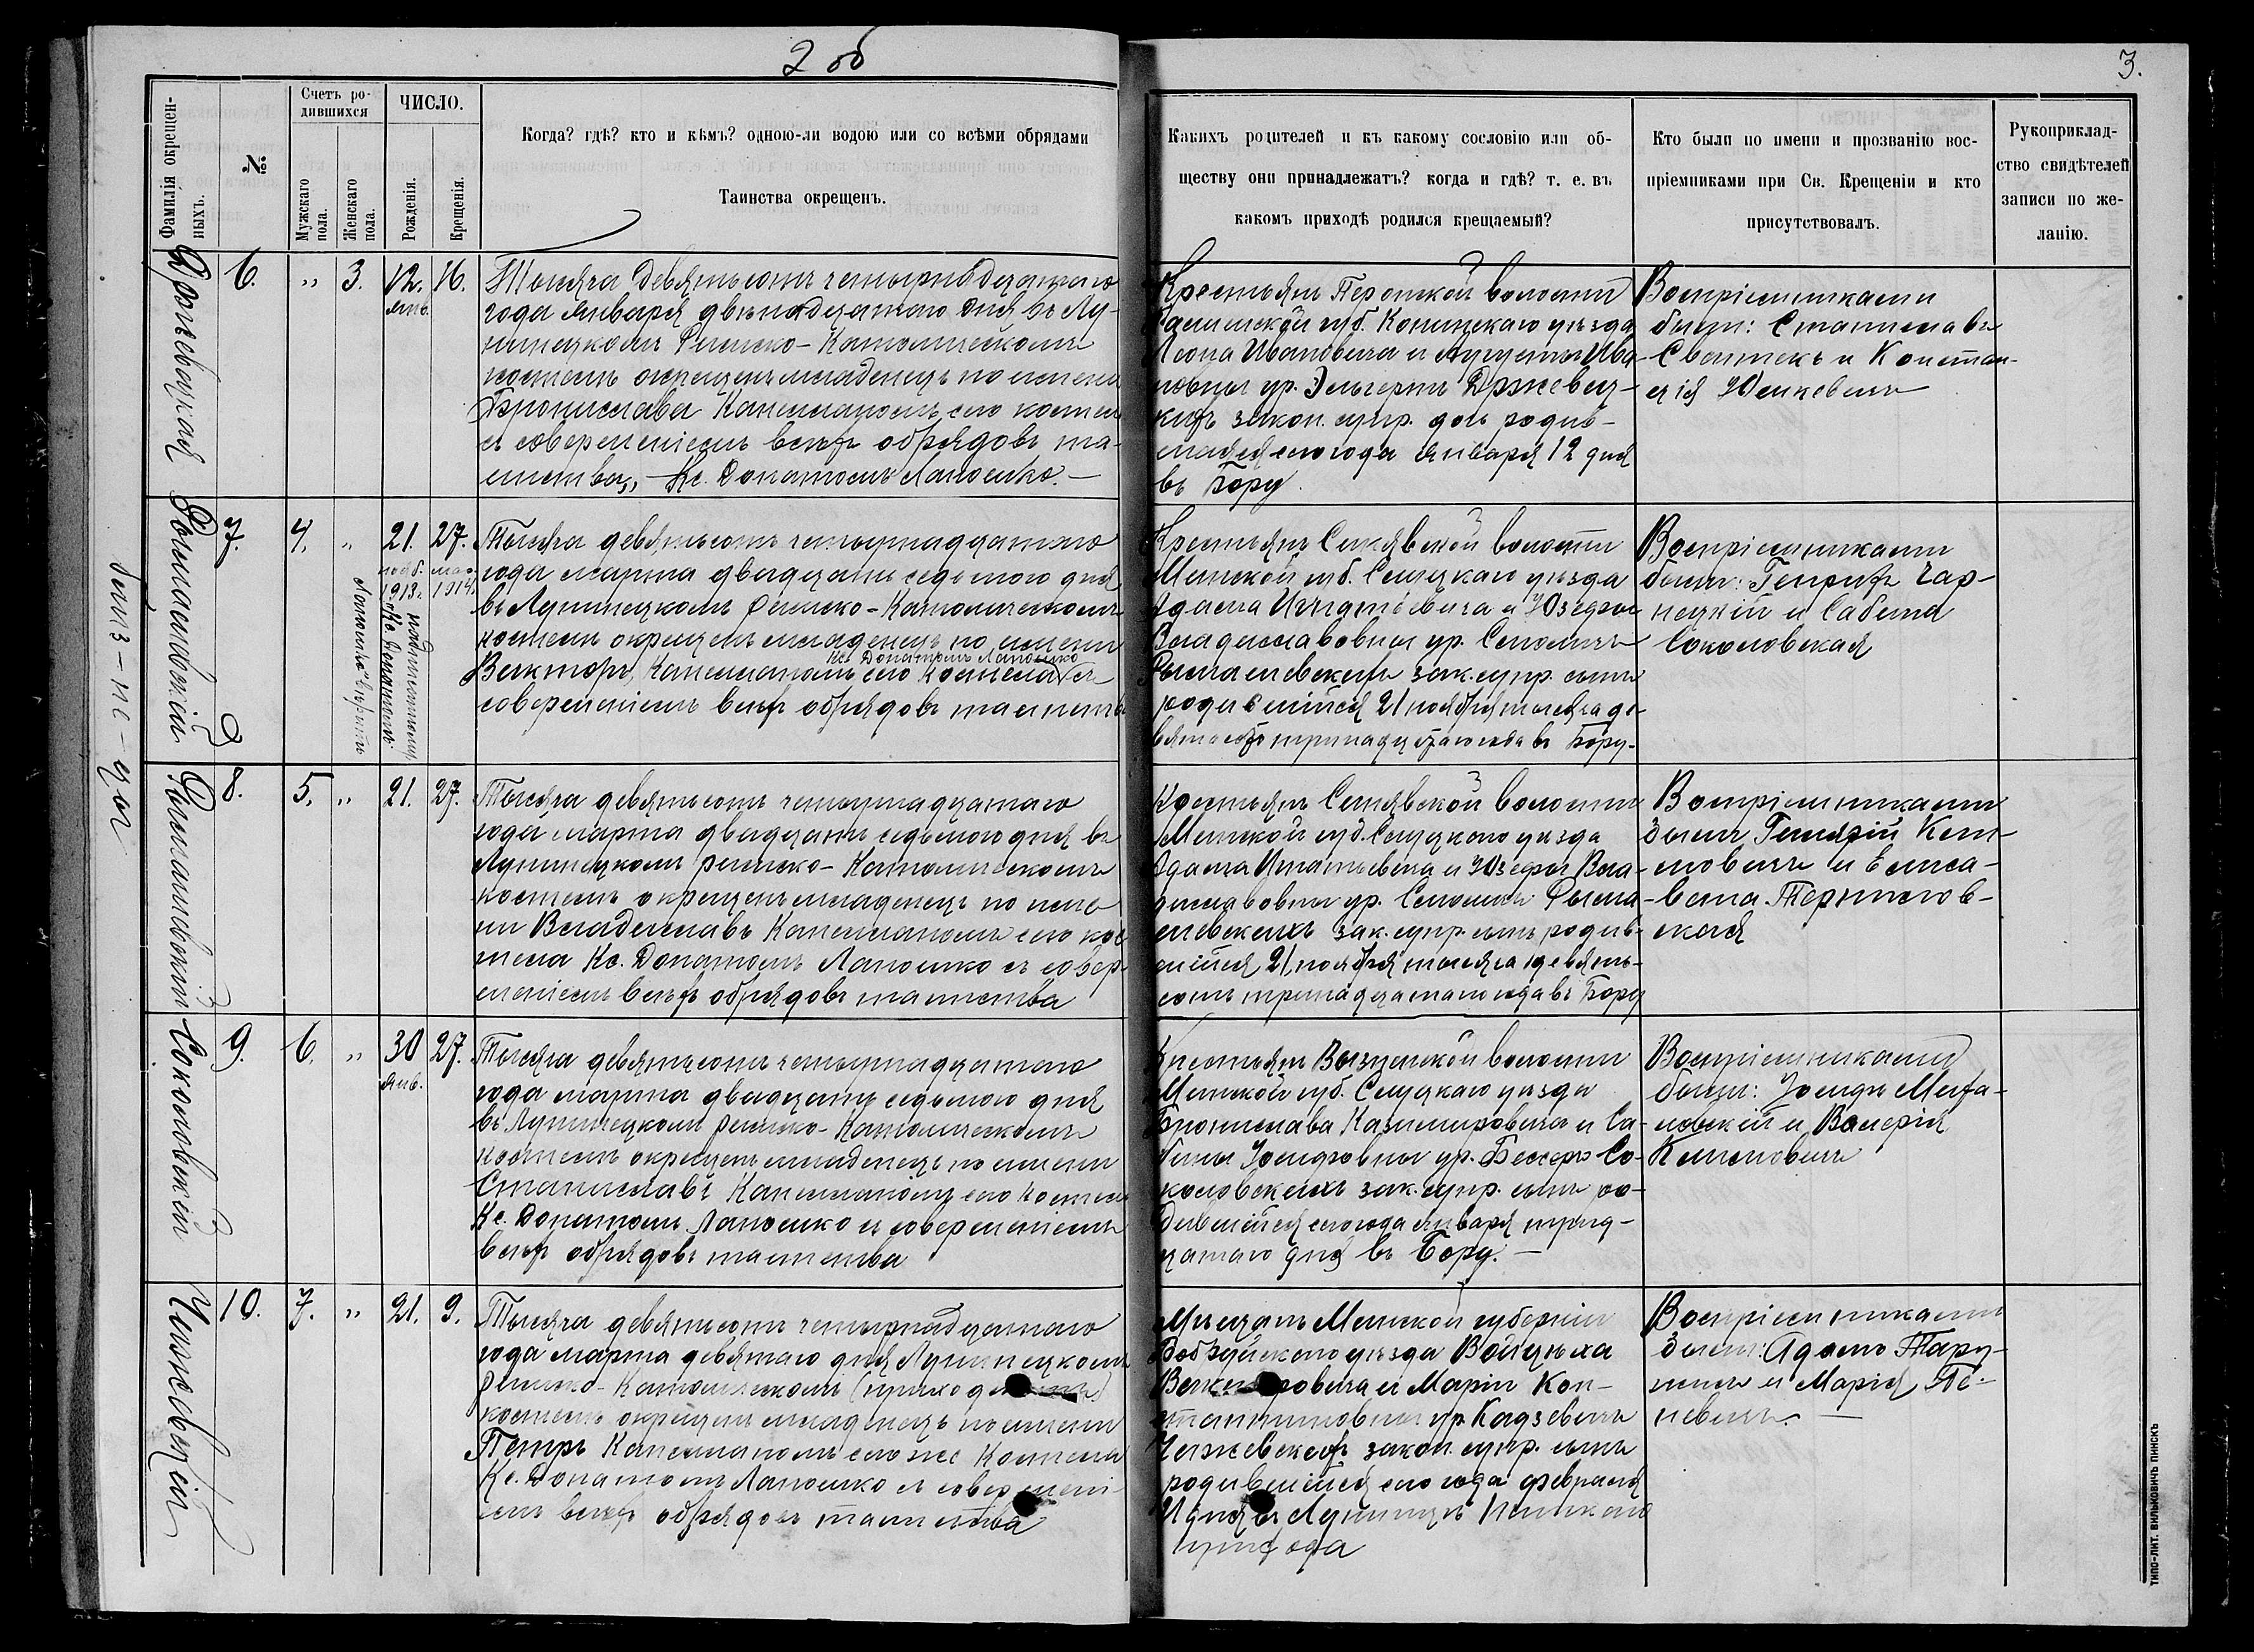 2 об
3.
Фамилія окрещен-
ныхъ.
№
Счетъ ро-
дившихся
Мужскаго
пола.
Женскаго
пола.
ЧИСЛО.
Рожденія.
Крещенія.
Когда? гдѣ? кто и кѣмъ? одною-ли водою или со всѣми обрядами
Таинства окрещенъ.
Какихъ родителей и къ какому сословію или об-
ществу они принадлежатъ? когда и гдѣ? т. е. въ
какомъ приходѣ родился крещаемый?
Кто были по имени и прозванію вос-
пріемниками при Св. Крещеніи и кто
присутствовалъ.
Рукоприклад-
ство свидѣтелей
записи по же-
ланію.
Држевецкая
6.
„
3.
12.
янв.
16.
Тысяча девятьсотъ четырнадцатаго
года Января двѣнадцатаго дня въ Лу-
нинецкомъ Римско-Католическомъ
костелѣ окрещенъ младенецъ по имени
Бронислава Капелланомъ сего костела
съ совершеніемъ всѣхъ обрядовъ та-
инства,, - Кс. Донатомъ Лапошко. -
Крестьянъ волости
губ. Конинскаго уѣзда
Леона Ивановича и Августы Ива-
новны ур. Држевец-
кихъ закон. супр. дочь родив-
шаяся сего года Января 12 дня
въ Бору.
Воспріемниками
были: Станиславъ
Свентекъ и Констан-
ція Юшкевичъ
близ-не-цы
Рымашевскій
7.
4.
„
21.
нояб.
1913 г.
27.
мар.
1914.
надписанному
"Кс Донатомъ
Лапошко" вѣрить
Тысяча девятьсотъ четырнадцатаго
года марта двадцать седьмого дня
въ Лунинецкомъ римско-Католическомъ
костелѣ окрещенъ младенецъ по имени
Кс. Донатомъ Лапошко
Викторъ, Капелланомъ сего Костела съ
совершеніемъ всѣхъ обрядовъ таинства
Крестьянъ Синявской волости
Минской губ. Слуцкаго уѣзда
Адама Игнатьевича и Юзефы
Владиславовны ур.
Рымашевскихъ зак. супр. сынъ
родившійся 21 ноября тысяча де-
вятьсотъ тринадцатаго года въ Бору-
Воспріемниками
были: Генрихъ Чар-
нецкій и Сабина
Соколовская
Рымашевскій
8.
5.
„
21.
27.
Тысяча девятьсотъ четырнадцатаго
года марта двадцать седьмого дня въ
Лунинецкомъ римско-Католическомъ
костелѣ окрещенъ младенецъ по име-
ни Владиславъ Капелланомъ сего кос-
тела Кс. Донатомъ Лапошко съ совер-
шеніемъ всѣхъ обрядовъ таинства
Крестьянъ Синявской волости
Минской губ. Слуцкаго уѣзда
Адама Игнатьевича и Юзефы Вла-
диславовны ур. Рыма-
шевскихъ зак. супр. сынъ родив-
шійся 21 ноября тысяча девять-
сотъ тринадцатаго года въ Бору
Воспріемниками
были Гилярій Кли-
мовичъ и Елиса-
вета
ская
Соколовскій
9.
6.
„
30
янв.
27.
Тысяча девятьсотъ четырнадцатаго
года марта двадцать седьмого дня
въ Лунинецкомъ римско-Католическомъ
костелѣ окрещенъ младенецъ по имени
Станиславъ Капелланомъ сего костела
Кс. Донатомъ Лапошко съ совершеніемъ
всѣхъ обрядовъ таинства
Крестьянъ Вызнянской волости
Минской губ. Слуцкаго уѣзда
Бронислава Казимировича и Са-
бины Іосифовны ур. Со-
коловскихъ зак. супр. сынъ ро-
дившійся сего года января трид-
цатаго дня въ Бору. -
Воспріемниками
были: Іосифъ Миха-
ловскій и Валерія
Климовичъ
10.
7.
„
21.
9.
Тысяча девятьсотъ четырнадцатаго
года марта девятаго дня Лунинецкомъ
римско-Католическомъ
костелѣ окрещенъ младенецъ по имени
Петръ Капелланомъ сего же Костела
Кс. Донатомъ Лапошко съ совершені-
емъ всѣхъ обрядовъ таинства
Мѣщанъ Минской губерніи
Бобруйскаго уѣзда Войцѣха
и Маріи Кон-
стантиновны ур. Кадзевичъ
закон. супр. сынъ
родившійся сего года февраля
Лунинцѣ Пинскаго
прихода
Воспріемниками
были: Адамъ
и Марія